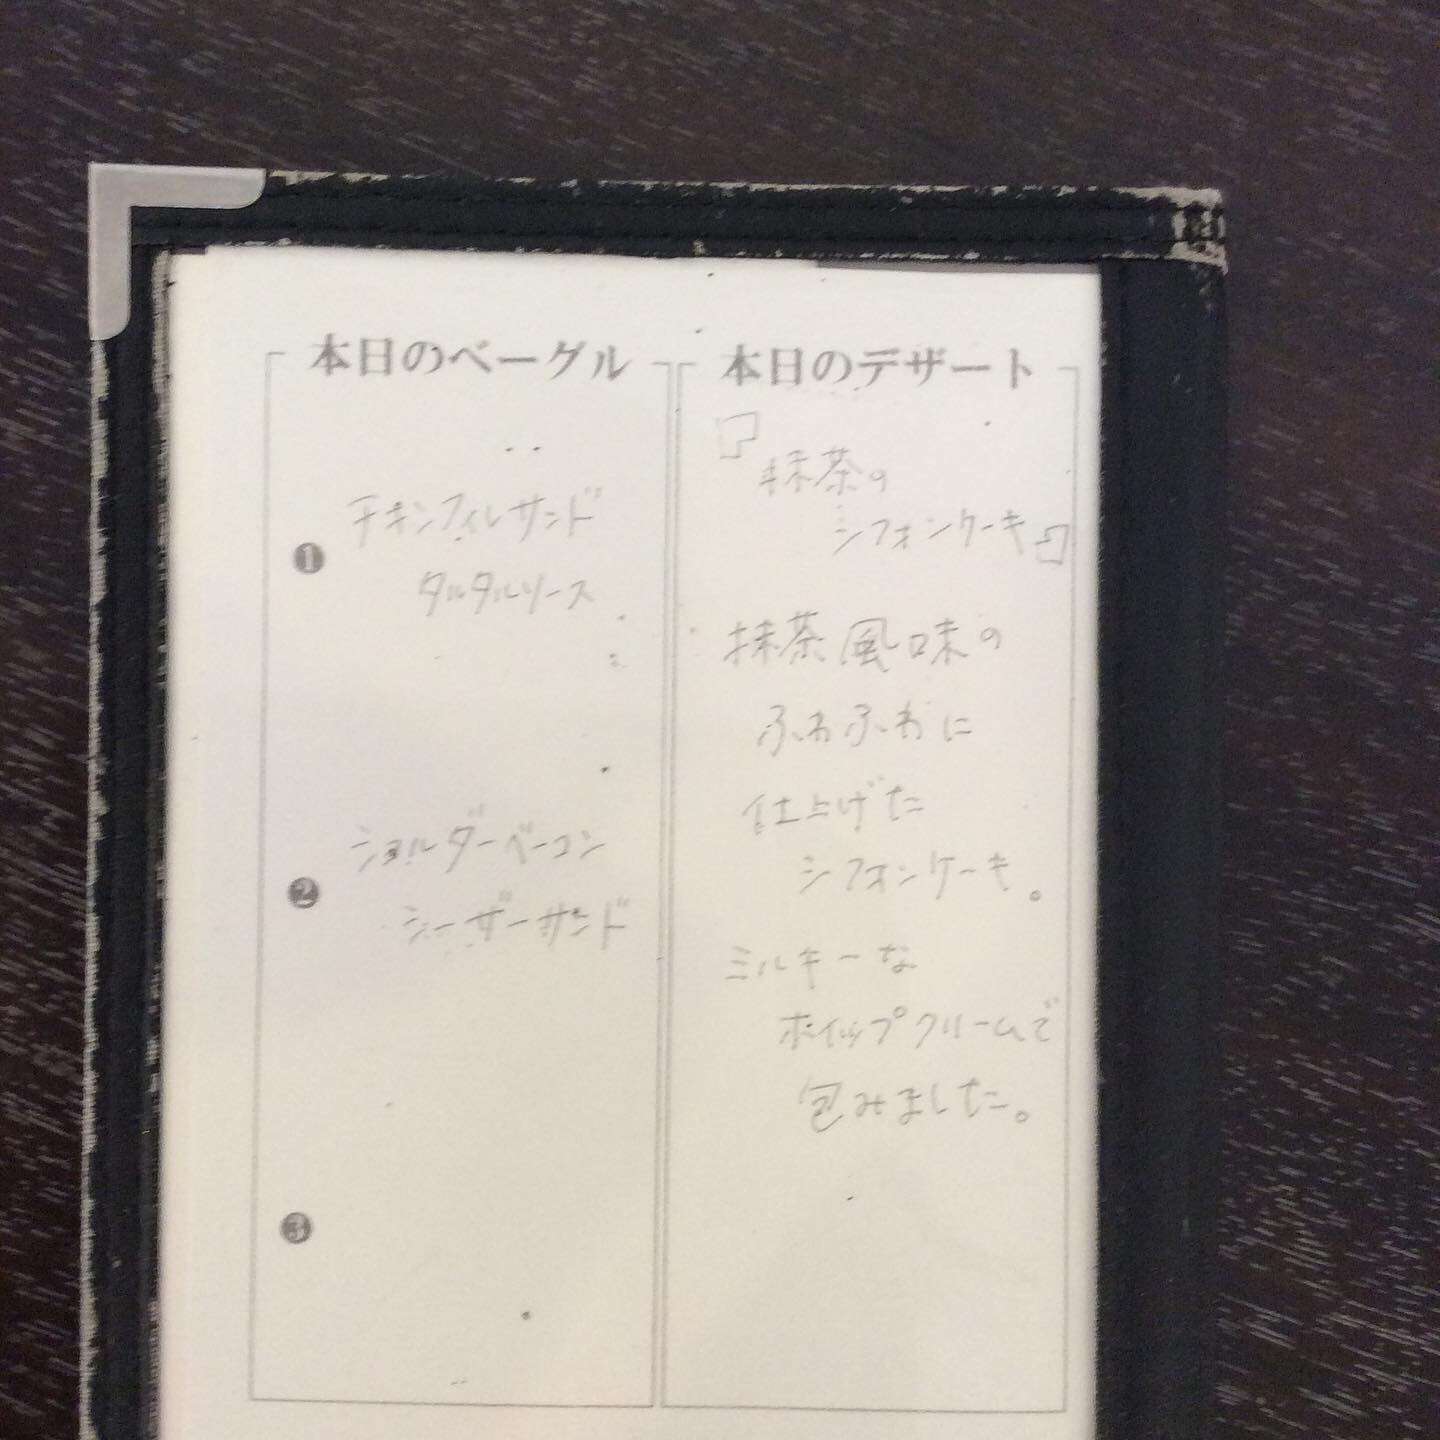 本日のベーグル
❶
チキンフィレサンド
タルタルソース
❷
ショルダーベーコン
シーザーサンド
❸
本日のデザート
『抹茶の
シフォンケーキ』
抹茶風味の
ふわふわに
仕上げた
シフォンケーキ。
ミルキーな
ホイップクリームで
包みました。